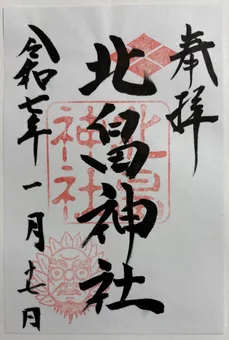 奉拝
北畠神社
北畠
神社
令和七年一月十七日